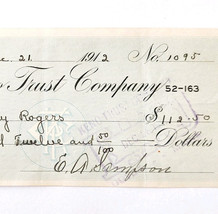 c. 21. 1912 No. 1095
Trust Company 52-163
y Rogers $112.50
Twelve and 50/100 Dollars
E. A. Sampson